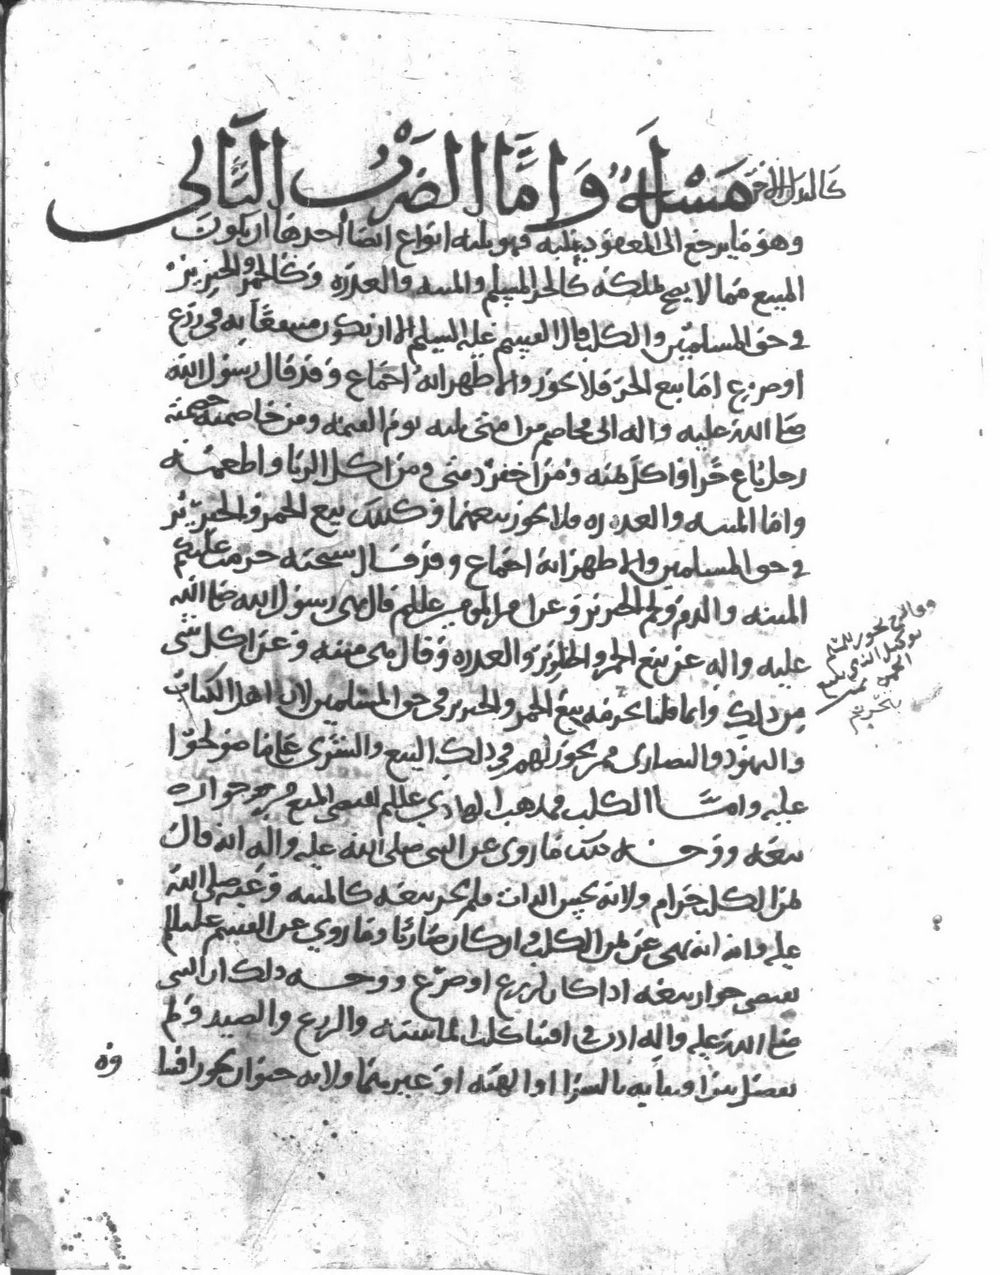 مسلة واما الضرب الثاني
وهو ما يرجع الى المعقود عليه فهو ثلثه انواع ايضا احدها ان يكون
المبيع مما لا يصح تملكه كالحر المسلم والميته والعذره وكالخمر والخنزير
في حق المسلمين والكلب قال القسم عليه السلم الا ان يكون منتفعا به في زرع
او ضرع اما بيع الحر فلا يجوز والاظهر انه اجماع وقد قال رسول الله
صلى الله عليه واله اني مخاصم من امتي ثلثه يوم القيمه ومن خاصمته خصمته
رجل باع حرا واكل ثمنه ومن اخفر ذمتي ومن اكل الربا واطعمه
واما الميته والعذره فلا يجوز بيعهما وكذلك بيع الخمر والخنزير
في حق المسلمين والاظهر انه اجماع وقد قال سبحنه حرمت عليكم
الميته والدم ولحم الخنزير وعن امير المومنين عللم قال نهى رسول الله صلى الله
عليه واله عن بيع الخمر والخنزير والعذره وقال هي ميته وعن اكل شي
من ذلك وانما قلنا بحرمه بيع الخمر والخنزير في حق المسلمين لان اهل الكتاب
واليهود والنصارى يجوز لهم في ذلك البيع والشرى على ما صولحوا
عليه واما الكلب فمذهب الهادي عللم يقتضي المنع من جوازه
بيعه ووجه ذلك ما روي عن النبي صلى الله عليه واله انه قال
ثمن الكلب حرام ولانه نجس الذات فلم يجز بيعه كالميته وعنه صلى الله
عليه واله انه نهى عن ثمن الكلب وان كان ضاريا وما روي عن القسم عليلم
يقتضي جواز بيعه اذا كان لزرع او ضرع ووجه ذلك ان النبي
صلى الله عليه واله اذن في اقتنا كلب الماشيه والزرع والصيد ولم
يفصل بين اقتنايه بالشرا او الهبه او غيرهما ولانه حيوان يجوز اقتنا